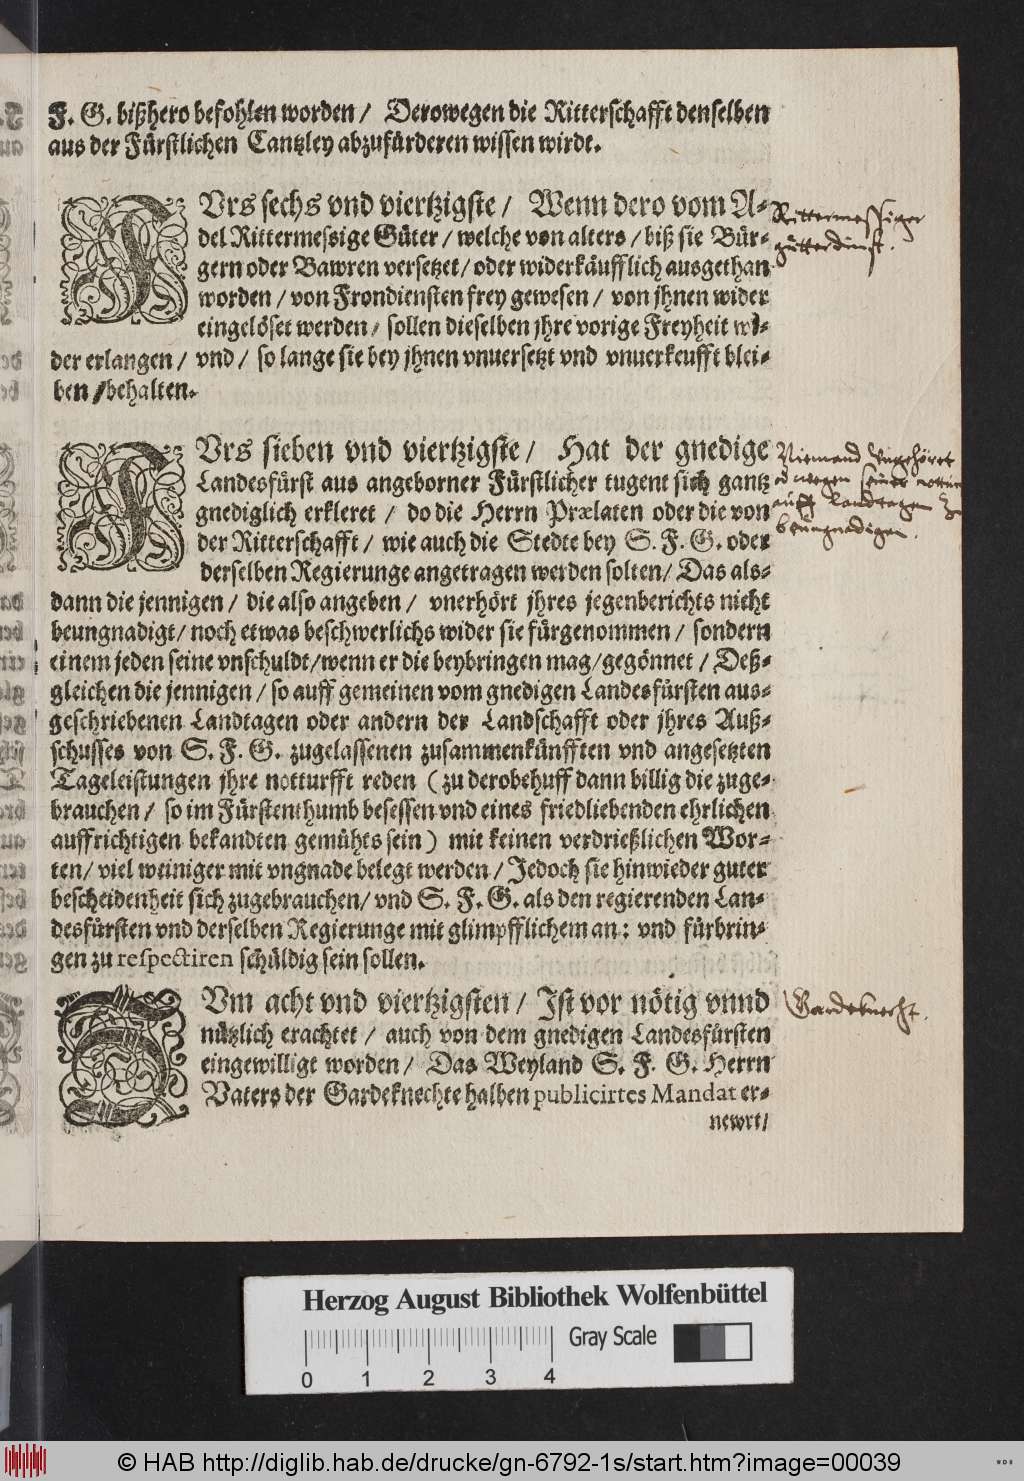 F. G. bißhero befohlen worden / Derowegen die Ritterschafft denselben
aus der Fürstlichen Cantzley abzufürderen wissen wirdt.
FUrs sechs vnd viertzigste / Wenn dero vom A-
del Rittermessige Güter / welche von alters / biß sie Bür-
gern oder Bawren versetzet / oder widerkäufflich ausgethan
worden / von Frondiensten frey gewesen / von jhnen wider
eingelöset werden / sollen dieselben jhre vorige Freyheit wi-
der erlangen / vnd / so lange sie bey jhnen vnuersetzt vnd vnuerkeufft blei-
ben / behalten.
Rittermessiger
gütter dinst.
FUrs sieben vnd viertzigste / Hat der gnedige
Landesfürst aus angeborner Fürstlicher tugent sich gantz
gnediglich erkleret / do die Herrn Prælaten oder die von
der Ritterschafft / wie auch die Stedte bey S. F. G. oder
derselben Regierunge angetragen werden solten / Das als-
dann die jennigen / die also angeben / vnerhört jhres jegenberichts nicht
beungnadigt / noch etwas beschwerlichs wider sie fürgenommen / sondern
einem jeden seine vnschuldt / wenn er die beybringen mag / gegönnet / Deß-
gleichen die jennigen / so auff gemeinen vom gnedigen Landesfürsten aus-
geschriebenen Landtagen oder andern der Landschafft oder jhres Auß-
schusses von S. F. G. zugelassenen zusammenkünfften vnd angesetzten
Tageleistungen jhre notturfft reden ( zu derobehuff dann billig die zuge-
brauchen / so im Fürstenthumb besessen vnd eines friedliebenden ehrlichen
auffrichtigen bekandten gemühts sein ) mit keinen verdrießlichen Wor-
ten / viel weiniger mit vngnade belegt werden / Jedoch sie hinwieder guter
bescheidenheit sich zugebrauchen / vnd S. F. G. als den regierenden Lan-
desfürsten vnd derselben Regierunge mit glimpfflichem an: vnd fürbrin-
gen zu respectiren schüldig sein sollen.
Niemand Vngehöret
wegen seiner
auff Landtagen
beungnadigen.
ZUm acht vnd viertzigsten / Ist vor nötig vnnd
nützlich erachtet / auch von dem gnedigen Landesfürsten
eingewilligt worden / Das Weyland S. F. G. Herrn
Vaters der Gardeknechte halben publicirtes Mandat er-
newrt/
Gardeknecht.
Herzog August Bibliothek Wolfenbüttel
Gray Scale
0 1 2 3 4
© HAB http://diglib.hab.de/drucke/gn-6792-1s/start.htm?image=00039